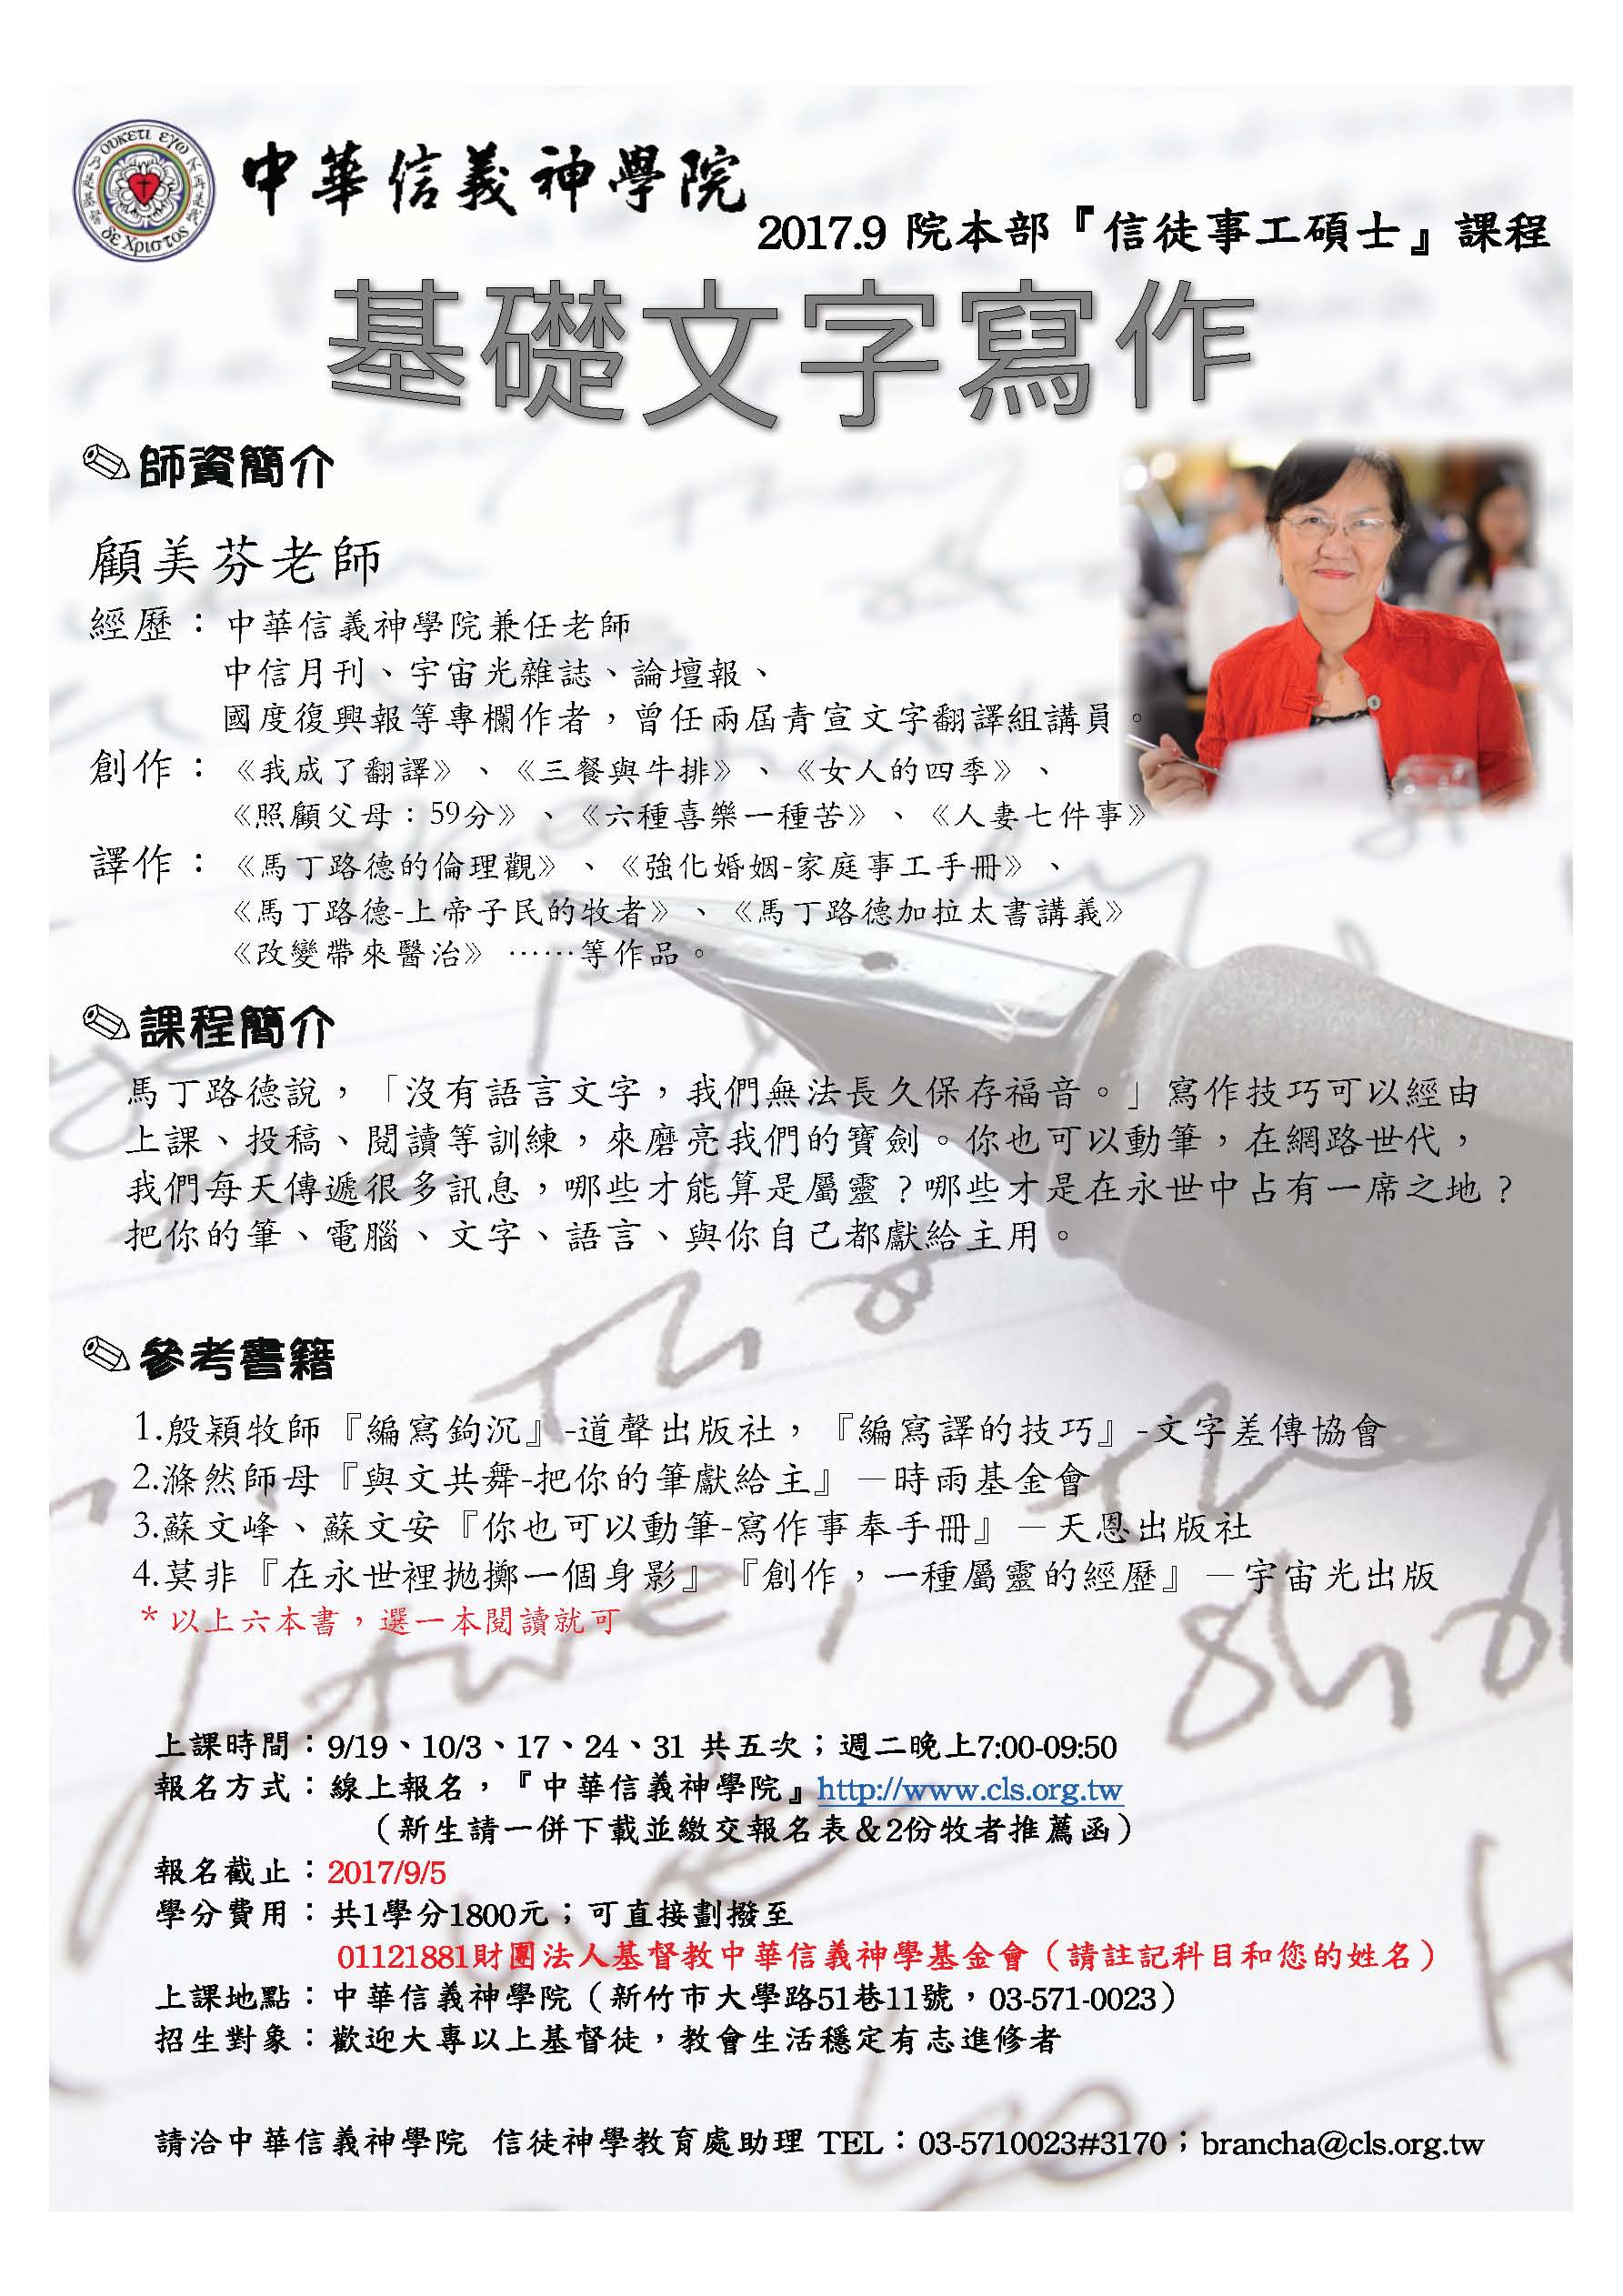 中華信義神學院
2017.9 院本部『信徒事工碩士』課程
基礎文字寫作
師資簡介
顧美芬老師
經歷：中華信義神學院兼任老師
中信月刊、宇宙光雜誌、論壇報、
國度復興報等專欄作者，曾任兩屆青宣文字翻譯組講員。
創作：《我成了翻譯》、《三餐與牛排》、《女人的四季》、
《照顧父母：59分》、《六種喜樂一種苦》、《人妻七件事》
譯作：《馬丁路德的倫理觀》、《強化婚姻-家庭事工手冊》、
《馬丁路德-上帝子民的牧者》、《馬丁路德加拉太書講義》
《改變帶來醫治》……等作品。
課程簡介
馬丁路德說，「沒有語言文字，我們無法長久保存福音。」寫作技巧可以經由
上課、投稿、閱讀等訓練，來磨亮我們的寶劍。你也可以動筆，在網路世代，
我們每天傳遞很多訊息，哪些才能算是屬靈？哪些才是在永世中占有一席之地？
把你的筆、電腦、文字、語言、與你自己都獻給主用。
參考書籍
1.殷穎牧師『編寫鉤沉』-道聲出版社，『編寫譯的技巧』-文字差傳協會
2.滌然師母『與文共舞-把你的筆獻給主』－時雨基金會
3.蘇文峰、蘇文安『你也可以動筆-寫作事奉手冊』－天恩出版社
4.莫非『在永世裡拋擲一個身影』『創作，一種屬靈的經歷』－宇宙光出版
*以上六本書，選一本閱讀就可
上課時間：9/19、10/3、17、24、31 共五次；週二晚上7:00-09:50
報名方式：線上報名，『中華信義神學院』http://www.cls.org.tw
（新生請一併下載並繳交報名表＆2份牧者推薦函）
報名截止：2017/9/5
學分費用：共1學分1800元；可直接劃撥至
01121881財團法人基督教中華信義神學基金會（請註記科目和您的姓名）
上課地點：中華信義神學院（新竹市大學路51巷11號，03-571-0023）
招生對象：歡迎大專以上基督徒，教會生活穩定有志進修者
請洽中華信義神學院 信徒神學教育處助理 TEL：03-5710023#3170；brancha@cls.org.tw